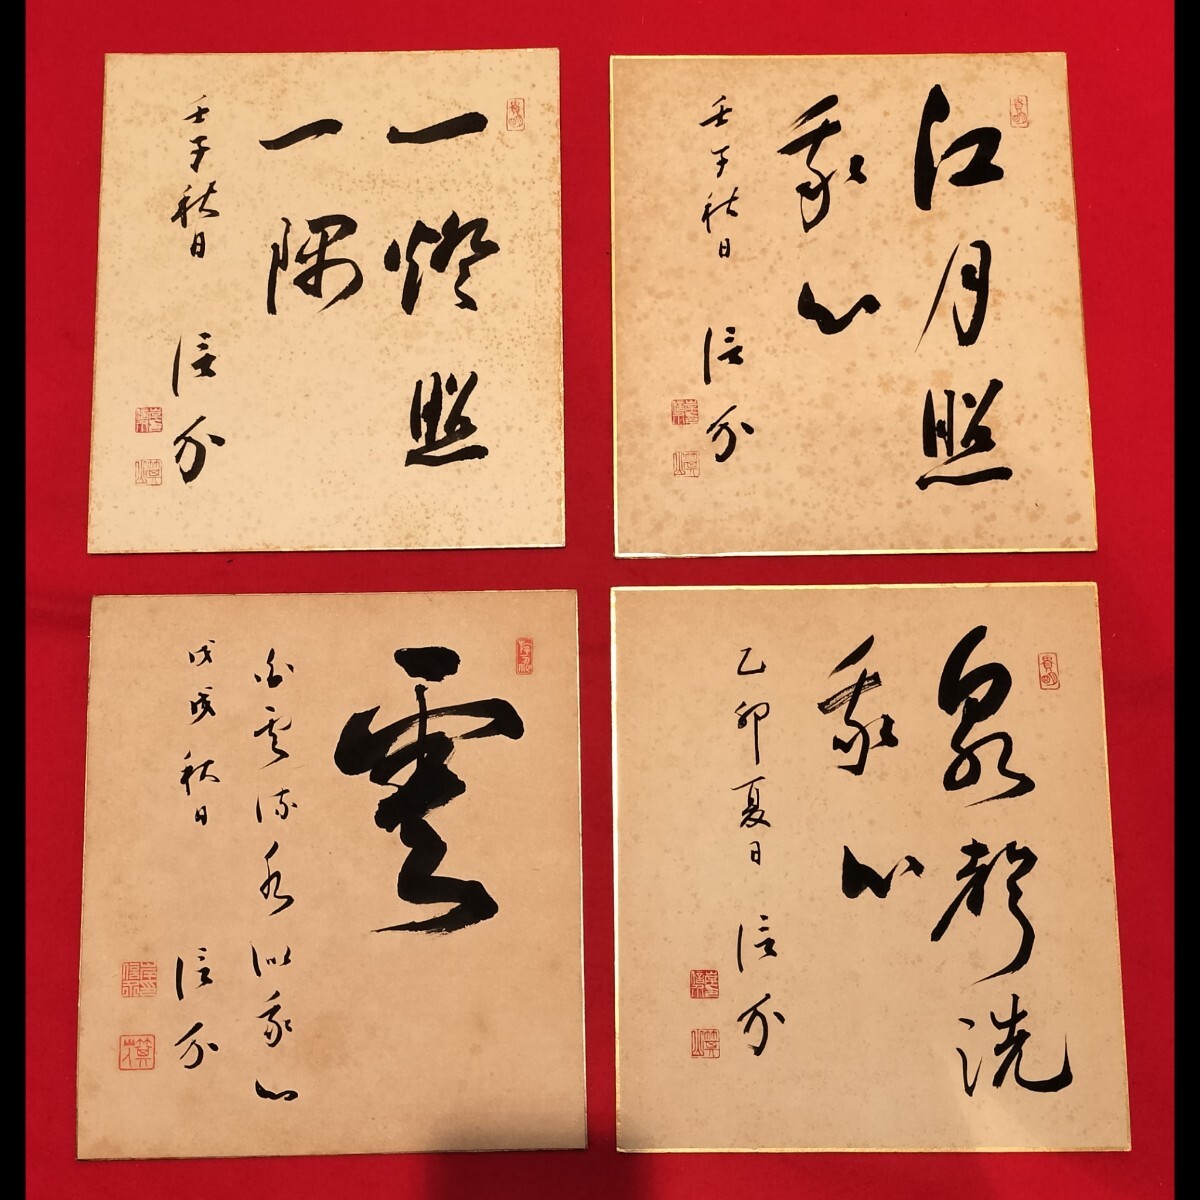 一燈照
一隅
壬子秋日 信介
江月照
我心
壬子秋日 信介
雲
白雲流水似我心
戊戌秋日 信介
泉聲洗
我心
乙卯夏日 信介